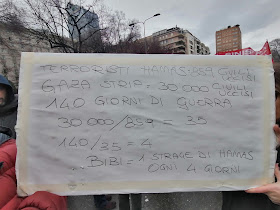 TERRORISTI HAMAS=859 CIVILI UCCISI
GAZA STRIP = 30.000 CIVILI UCCISI
140 GIORNI DI GUERRA
30 000/859 = 35
140/35 = 4
BIBI = 1 STRAGE DI HAMAS
OGNI 4 GIORNI